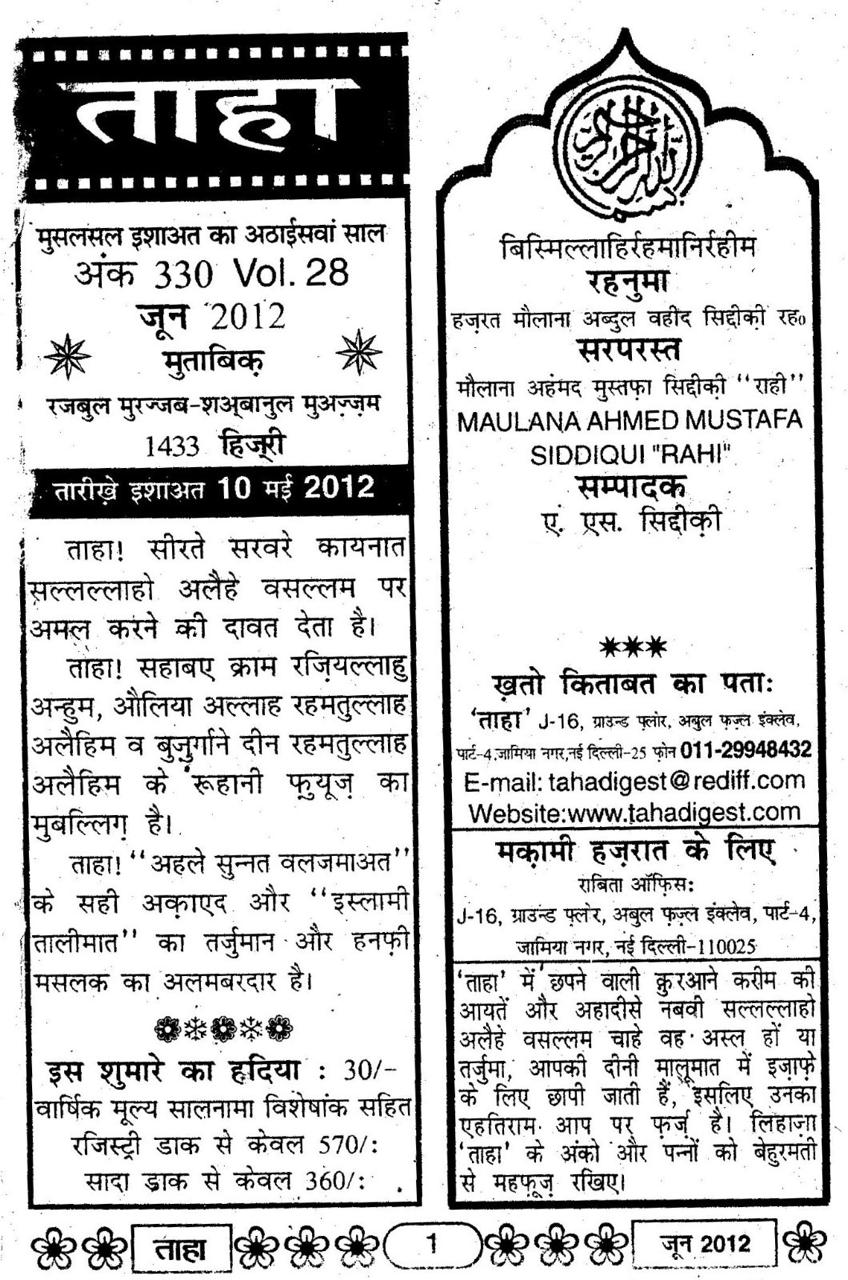 ताहा
मुसलसल इशाअत का अठाईसवां साल
अंक 330 Vol. 28
जून 2012
मुताबिक़
रजबुल मुरज्जब-शअ्बानुल मुअज़्ज़म
1433 हिज्री
तारीखे़ इशाअत 10 मई 2012
ताहा! सीरते सरवरे कायनात
सल्लल्लाहो अलैहे वसल्लम पर
अमल करने की दावत देता है।
ताहा! सहाबए क्राम रज़ियल्लाहु
अन्हुम, औलिया अल्लाह रहमतुल्लाह
अलैहिम व बुजु़र्गाने दीन रहमतुल्लाह
अलैहिम के रूहानी फु़यूज़ का
मुबल्लिग़ है।
ताहा! “अहले सुन्नत वलजमाअत”
के सही अक़ाएद और “इस्लामी
तालीमात” का तर्जुमान और हनफ़ी
मसलक का अलमबरदार है।
इस शुमारे का हदिया : 30/-
वार्षिक मूल्य सालनामा विशेषांक सहित
रजिस्ट्री डाक से केवल 570/:
सादा ड़ाक से केवल 360/:
بسم الله الرحمن الرحيم
बिस्मिल्लाहिर्रहमानिर्रहीम
रहनुमा
हज़रत मौलाना अब्दुल वहीद सिद्दीक़ी रह0
सरपरस्त
मौलाना अहंमद मुस्तफ़ा सिद्दीक़ी “राही”
MAULANA AHMED MUSTAFA
SIDDIQUI "RAHI"
सम्पादक
ए. एस. सिद्दीक़ी
ख़तो किताबत का पता:
‘ताहा’ J-16, ग्राउन्ड फ़्लोर, अबुल फज़्ल इंक्लेव,
पार्ट-4,जामिया नगर,नई दिल्ली-25 फोन 011-29948432
E-mail: tahadigest@rediff.com
Website:www.tahadigest.com
मक़ामी हज़रात के लिए
राबिता ऑफ़िस:
J-16, ग्राउन्ड फ़्लोर, अबुल फज़्ल इंक्लेव, पार्ट-4,
जामिया नगर, नई दिल्ली-110025
‘ताहा’ में छपने वाली क़ुरआने करीम की
आयतें और अहादीसे नबवी सल्लल्लाहो
अलैहे वसल्लम चाहे वह अस्ल हों या
तर्जुमा, आपकी दीनी मालूमात में इज़ाफ़े
के लिए छापी जाती हैं, इसलिए उनका
एहतिराम आप पर फ़र्ज़ है। लिहाजा
‘ताहा’ के अंको और पन्नों को बेहुरमती
से महफ़ूज़ रखिए।
ताहा
1
जून 2012